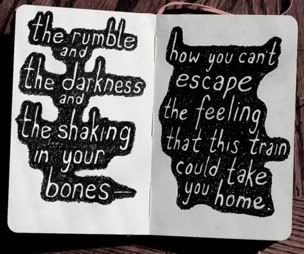 the rumble
and
the darkness
and
the shaking
in your
bones—
how you can't
escape
the feeling
that this train
could take
you home.